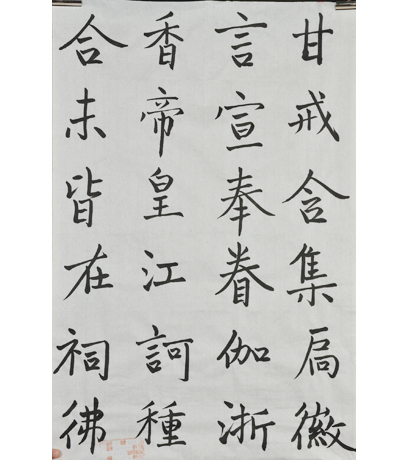 甘戒含集扃徽
言宣奉眷伽浙
香帝皇江訶種
合未皆在祠彿